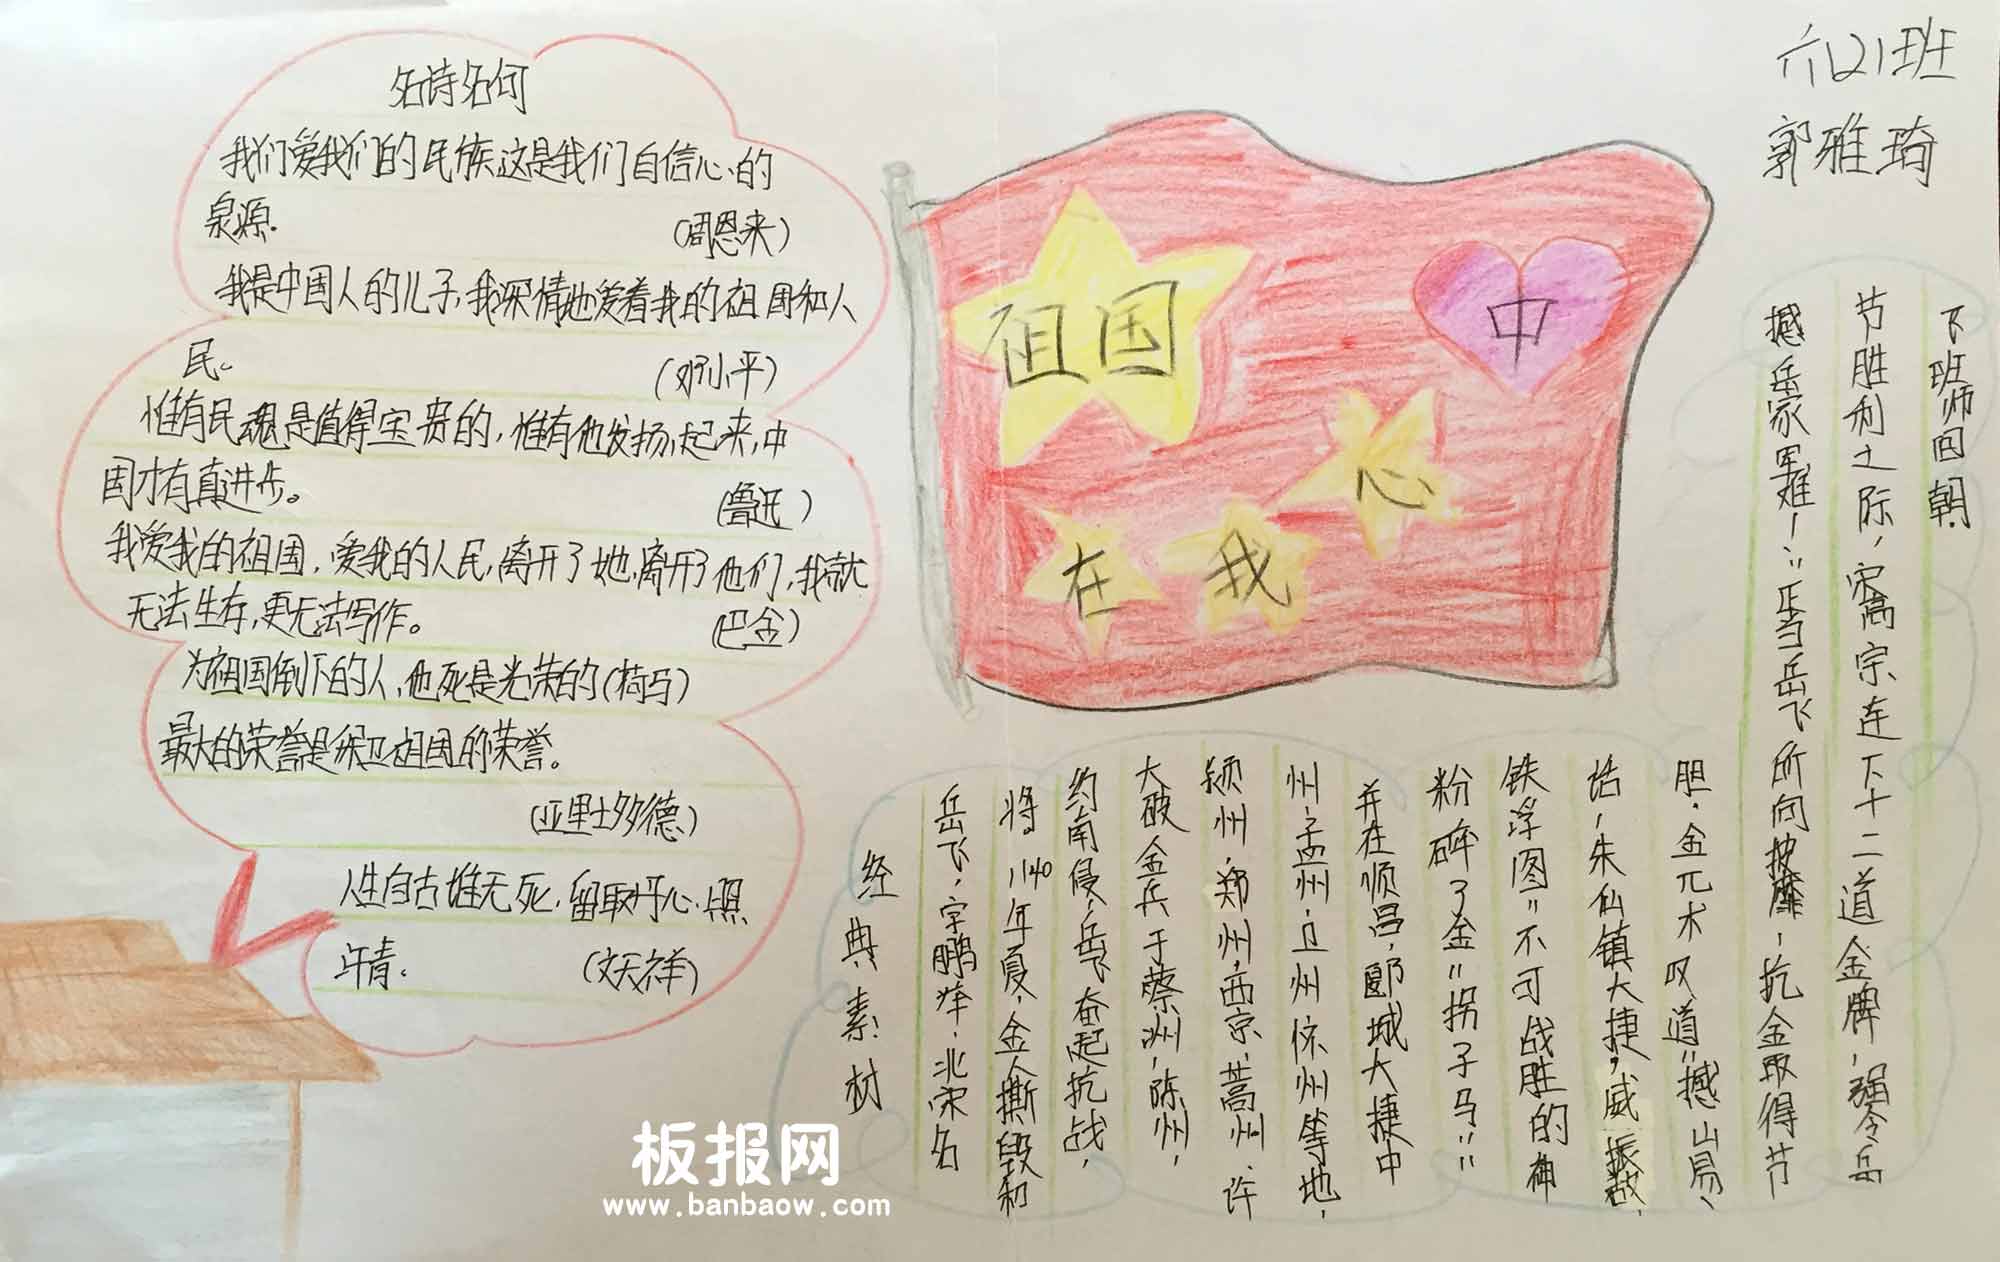 名诗名句
我们爱我们的民族,这是我们自信心的
泉源.
(周恩来)
我是中国人的儿子,我深情地爱着我的祖国和人
民。
(邓小平)
惟有民魂是值得宝贵的,惟有他发扬起来,中
国才有真进步。
(鲁迅)
我爱我的祖国,爱我的人民,离开了她,离开了他们,我就
无法生存,更无法写作。
(巴金)
为祖国倒下的人,他死是光荣的(荷马)
最大的荣誉是保卫祖国的荣誉。
(亚里士多德)
人生自古谁无死,留取丹心照
汗青.
(文天祥)
祖国
在我心中
六(2)班
郭雅琦
经典素材
岳飞,字鹏举,北宋名
将,1140年夏,金人撕毁和
约南侵,岳飞奋起抗战,
大破金兵于蔡州,陈州,
颍州,郑州,西京,嵩州,许
州,孟州,卫州怀州等地,
并在顺昌,郾城大捷中
粉碎了金"拐子马"
铁浮图"不可战胜的神
话,朱仙镇大捷,威振敌
胆,金兀术叹道"撼山易、
撼岳家军难!"正当岳飞所向披靡,抗金取得节
节胜利之际,宋高宗连下十二道金牌,强令岳
飞班师回朝
板报网
www.banbaow.com